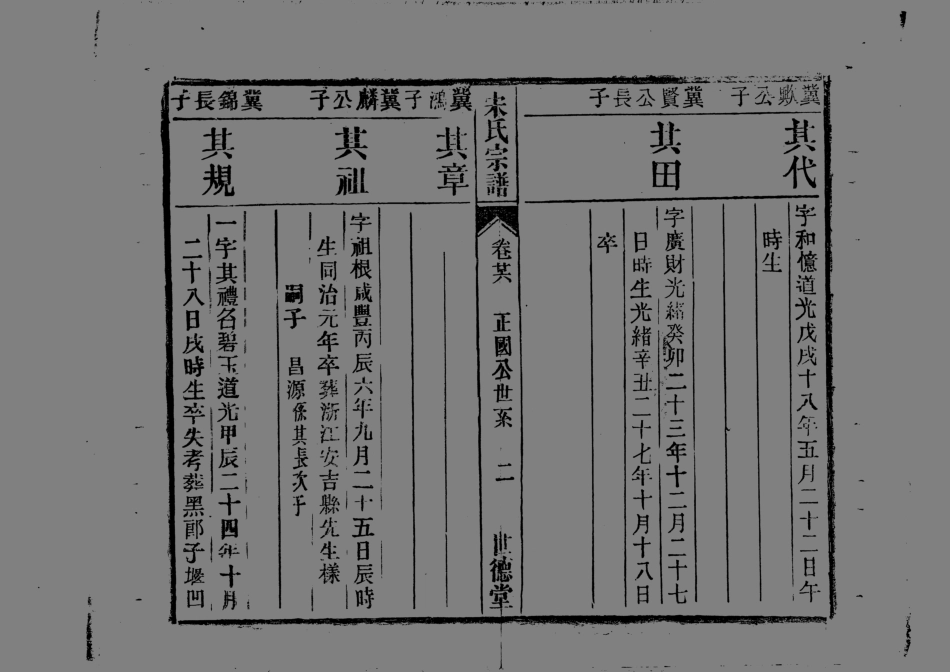 冀歟公子
其代
字和億道光戊戌十八年五月二十二日午
時生
冀賢公長子
其田
字廣財光緒癸卯二十三年十二月二十七
日時生光緒辛丑二十七年十月十八日
卒
宋氏宗譜
卷廿六 正國公世系 二 世德堂
冀鴻子
其章
冀麟公子
其祖
字祖根咸豐丙辰六年九月二十五日辰時
生同治元年卒葬浙江安吉縣先生樣
嗣子 昌源係其長次子
冀錦長子
其規
一字其禮名碧玉道光甲辰二十四年十月
二十八日戌時生卒失考葬黑郎子堰凹